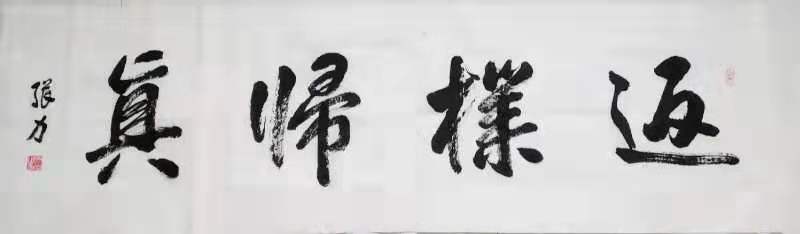 返樸歸真
張力